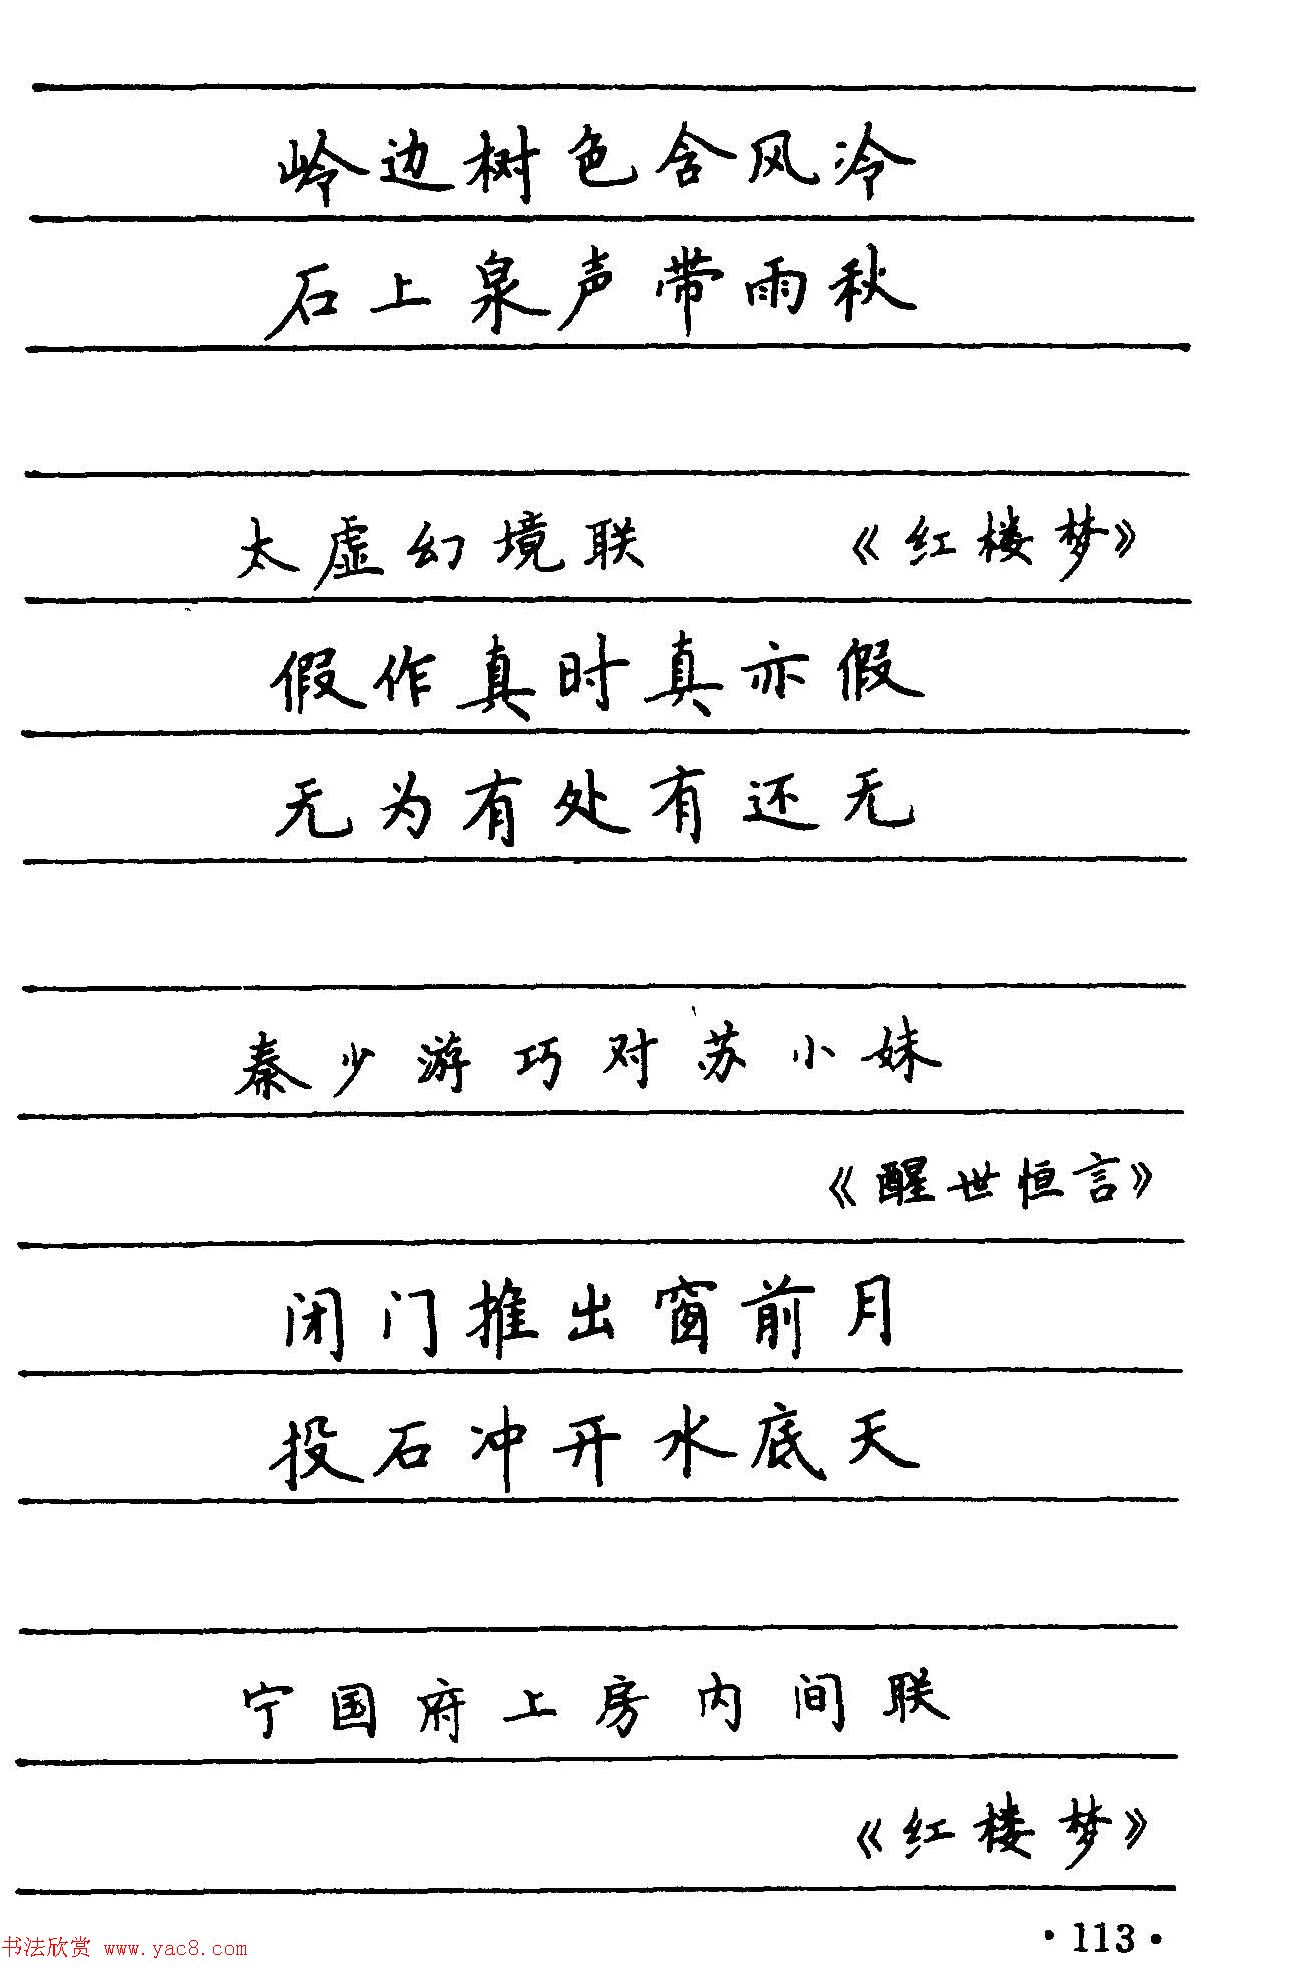 岭边树色含风冷
石上泉声带雨秋
太虚幻境联 《红楼梦》
假作真时真亦假
无为有处有还无
秦少游巧对苏小妹
《醒世恒言》
闭门推出窗前月
投石冲开水底天
宁国府上房内间联
《红楼梦》
·113·
书法欣赏 www.yac8.com